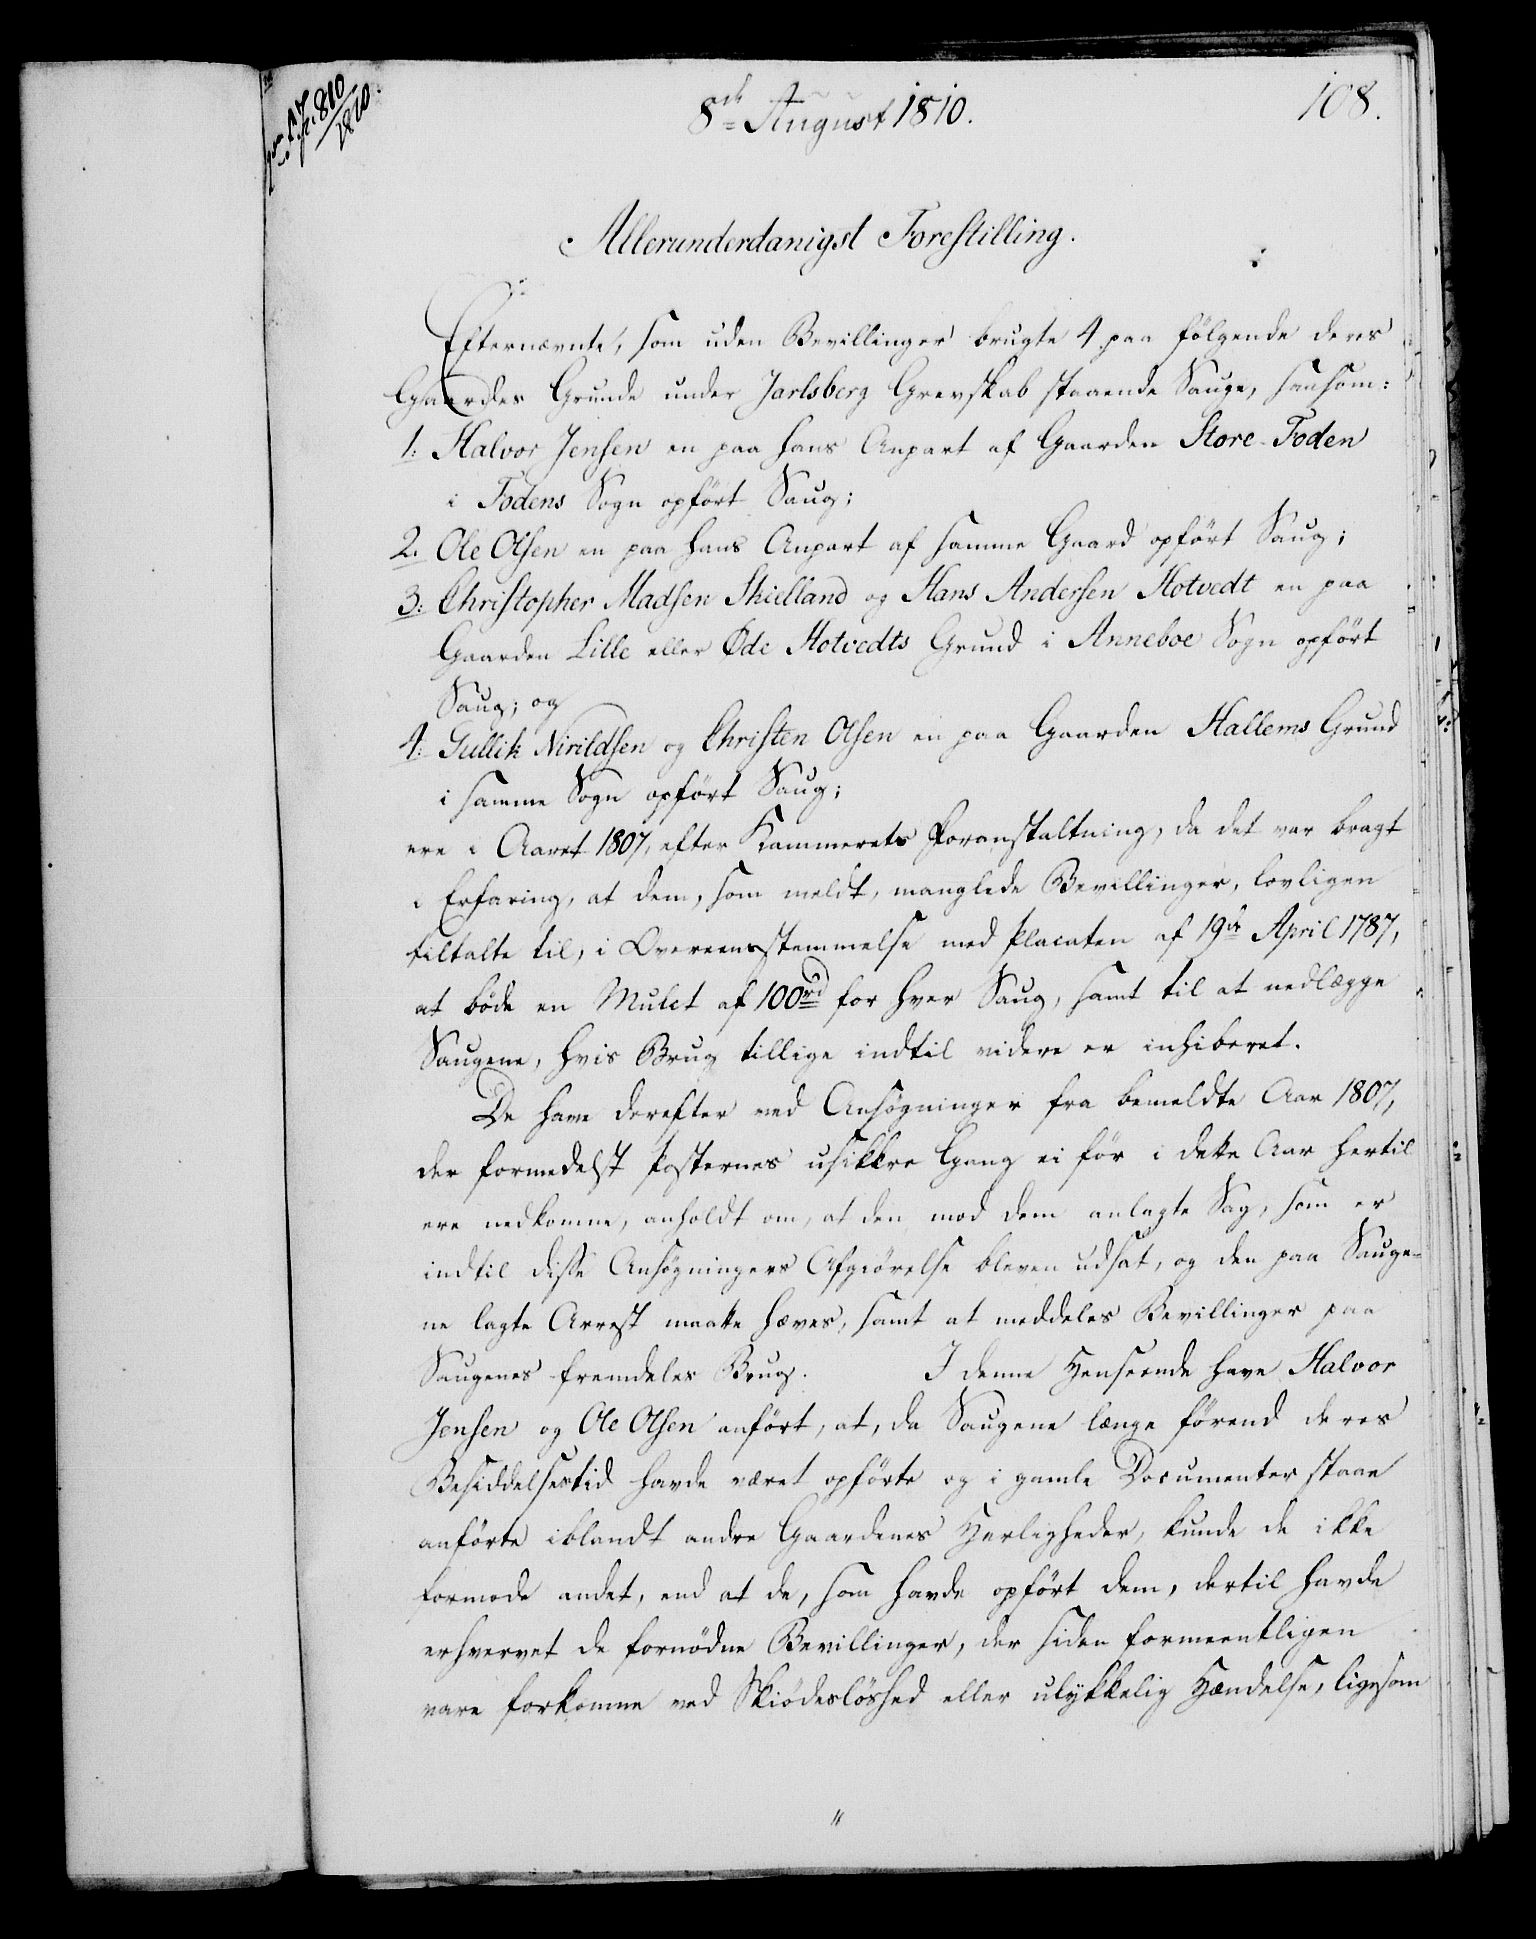 8de August 1810.
108.
No. 810
1810.
Allerunderdanigst Forestilling.
Efternævnte, som uden Bevillinger brugte 4 paa følgende deres
Gaardes Grunde under Jarlsberg Grevskab staaende Sauge, saasom:
1. Halvor Jensen en paa hans Anpart af Gaarden Store-Foden
i Fodens Sogn opført Saug;
2. Ole Olsen en paa hans Anpart af samme Gaard opført Saug;
3. Christopher Madsen Skielland og Hans Andersen Hotvedt en paa
Gaarden Lille eller Øde Hotvedts Grund i Anneboe Sogn opført
Saug; og
4. Gullik Nirildsen og Christen Olsen en paa Gaarden Hallems Grund
i samme Sogn opført Saug;
ere i Aaret 1807, efter Kammerets Foranstaltning, da det var bragt
i Erfaring, at dem, som meldt, manglede Bevillinger, lovligen
tiltalte til, i Overeensstemmelse med Placaten af 19de April 1787,
at bøde en Mulct af 100rd for hver Saug, samt til at nedlægge
Saugene, hvis Brug tillige indtil videre er inhiberet.
De have derefter ved Ansøgninger fra bemeldte Aar 1807,
der formedelst Posternes usikkre Gang ei før i dette Aar hertil
ere nedkomne, anholdt om, at den mod dem anlagte Sag, som er
indtil disse Ansøgningers Afgiørelse bleven udsat, og den paa Sauge-
ne lagte Arrest maatte hæves, samt at meddeles Bevillinger paa
Saugenes fremdeles Brug. I denne Henseende have Halvor
Jensen og Ole Olsen anført, at, da Saugene længe førend deres
Besiddelsestid havde været opførte og i gamle Documenter staae
anførte iblandt andre Gaardenes Herligheder, kunde de ikke
formode andet, end at de, som havde opført dem, dertil havde
erhvervet de fornødne Bevillinger, der siden formeentligen
vare forkomne ved Skiødesløshed eller ulykkelig Hændelse, ligesom
"